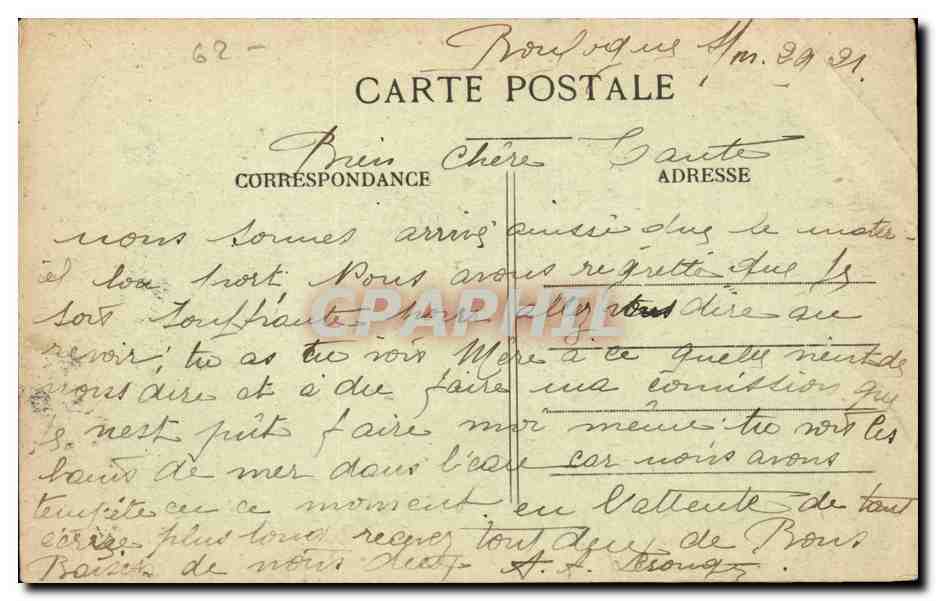 62 -
Boulogne s/m. 29 21.
CARTE POSTALE
Bien chère Tante
CORRESPONDANCE
ADRESSE
nous sommes arrivé ainssi que le mater-
iel bon port. Nous avons regretté que tu
sois souffrante pour allez vous dire au
revoir, tu as tu vois Mère à ce quelle vient de
nous dire et à du faire ma comission que
je nest put faire moi même tu vois les
bains de mer dans l'eau car nous avons
tempête en ce moment en l'attente de tant
écrire plus long recevez tout deux de Bons
Baisers de nous deux. A. A.
CPAPHIL